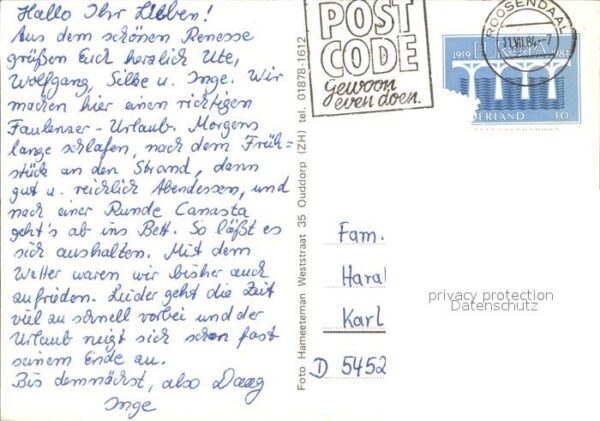 Hallo Ihr Lieben!
Aus dem schönen Renesse
grüßen Euch herzlich Ute,
Wolfgang, Silke u. Inge. Wir
machen hier einen richtigen
Faulenzer-Urlaub. Morgens
lange schlafen, nach dem Früh=
stück an den Strand, dann
gut u. reichlich Abendessen, und
nach einer Runde Canasta
geht's ab ins Bett. So läßt es
sich aushalten. Mit dem
Wetter waren wir bisher auch
zufrieden. Leider geht die Zeit
viel zu schnell vorbei und der
Urlaub neigt sich schon fast
seinem Ende zu.
Bis demnächst, also Daag
Inge
Foto Hameeteman Weststraat 35 Ouddorp (ZH) tel. 01878-1612
POST
CODE
Gewoon
even doen.
ROOSENDAAL
11.VII.84-7
1959 EUROPA 1984
NEDERLAND 50
Fam.
Haral
Karl
D 5452
privacy protection
Datenschutz